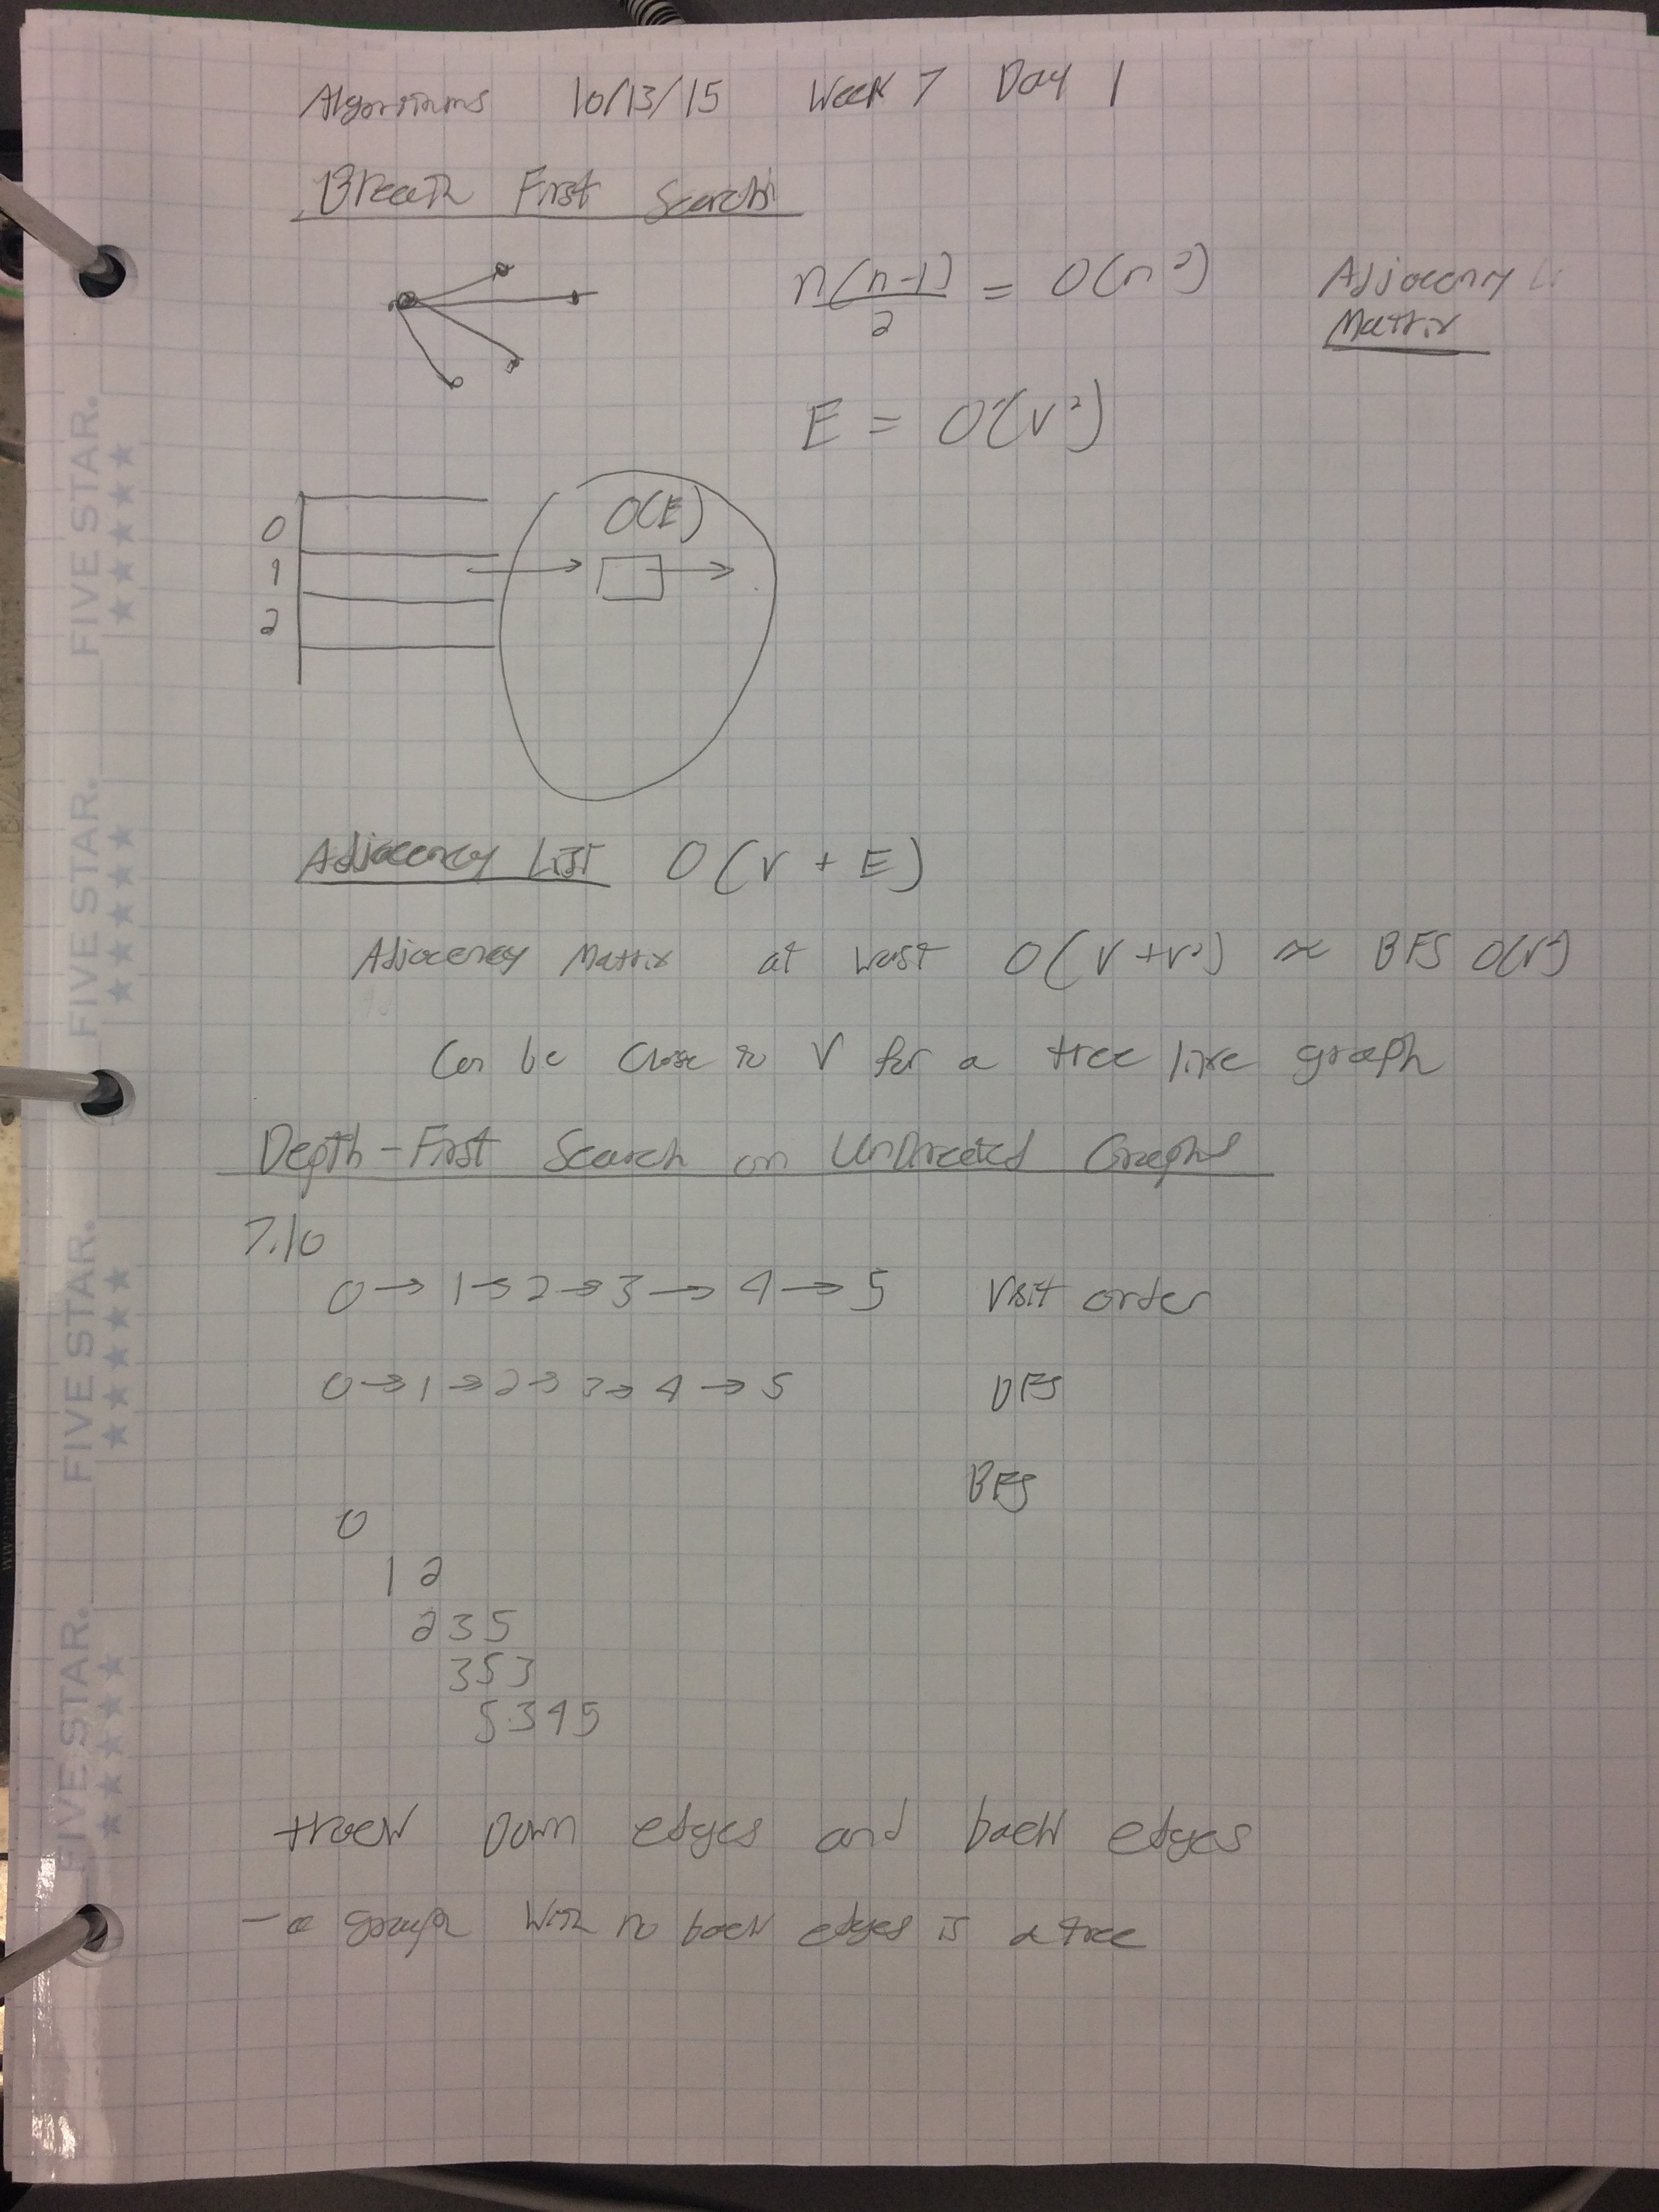 Algorithms 10/13/15 Week 7 Day 1
Breath First Search
n(n-1)/2 = O(n²) Adjacency
Matrix
E = O(V²)
O(E)
0
1
2
Adjacency List O(V + E)
Adjacency Matrix at worst O(V+V²) ≈ BFS O(V²)
Can be close to V for a tree like graph
Depth-First Search on Undirected Graphs
7.10
0 → 1 → 2 → 3 → 4 → 5 Visit order
0 → 1 → 2 → 3 → 4 → 5 DFS
BFS
0
1 2
2 3 5
3 5 3
5 3 4 5
track down edges and back edges
- a graph with no back edges is a tree
FIVE STAR.
FIVE STAR.
FIVE STAR.
FIVE STAR.